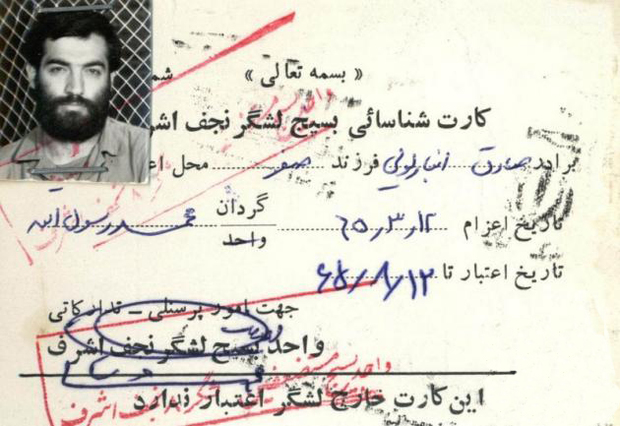 « بسمه تعالی »
کارت شناسائی بسیج لشگر نجف اشر
برادر صادق انبارلوئی فرزند صفر محل اع
تاریخ اعزام ۶۵/۳/۱۲ گردان واحد محمد رسول الله
تاریخ اعتبار تا ۶۵/۸/۱۲
جهت امور پرسنلی ــ تدارکاتی
واحد بسیج لشگر نجف اشرف
این کارت خارج لشگر اعتبار ندارد